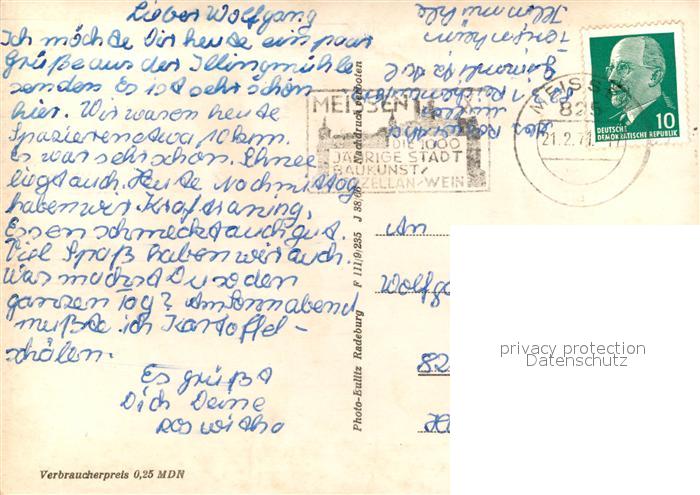 Lieber Wolfgang
Ich möchte Dir heute ein paar
Grüße aus der Illingmühle
senden. Es ist sehr schön
hier. Wir waren heute
Spazieren etwa 10 km.
Es war sehr schön. Schnee
liegt auch. Heute Nachmittag
haben wir Kraftraning,
Essen schmeckt auch gut.
Viel Spaß haben wir auch.
Was machst Du so den
ganzen Tag? Am Sonnabend
mußte ich Kartoffel-
schälen.
Es grüßt
Dich Deine
Roswitha
Verbraucherpreis 0,25 MDN
Photo-Eulitz Radeburg F 111/9/235 J 38/66 Nachdruck verboten
MEISSEN
DIE 1000
JÄHRIGE STADT
BAUKUNST/
PORZELLAN/WEIN
MEISSEN
825
21.2.71
DEUTSCHE
DEMOKRATISCHE REPUBLIK
10
An
Wolfg
82
privacy protection
Datenschutz